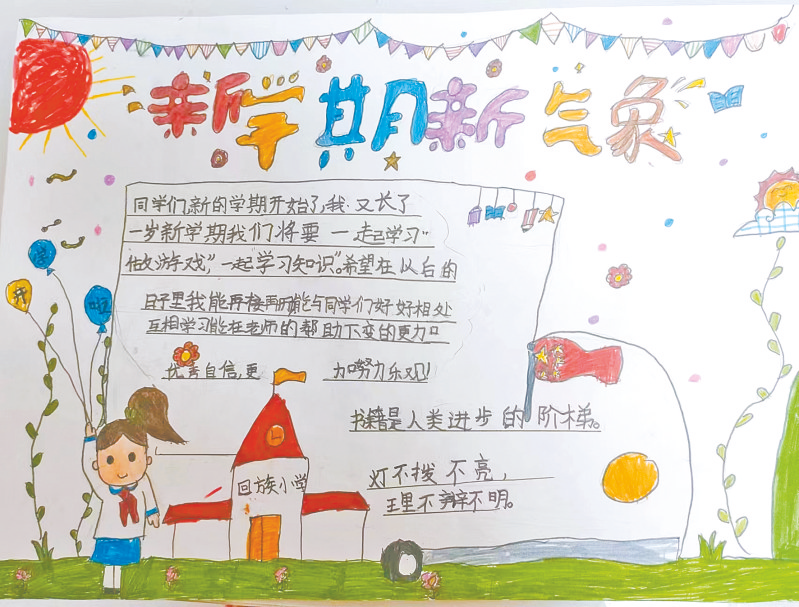 新学期新气象
同学们新的学期开始了,我又长了
一岁新学期我们将要一起学习“
做游戏”,一起学习知识”。希望在以后的
日子里我能再接再厉能与同学们好好相处
互相学习能在老师的帮助下变的更加
优秀自信,更 加努力乐观!
开
学
啦
书籍是人类进步的阶梯。
回族小学
灯不拨不亮,
理不辩不明。